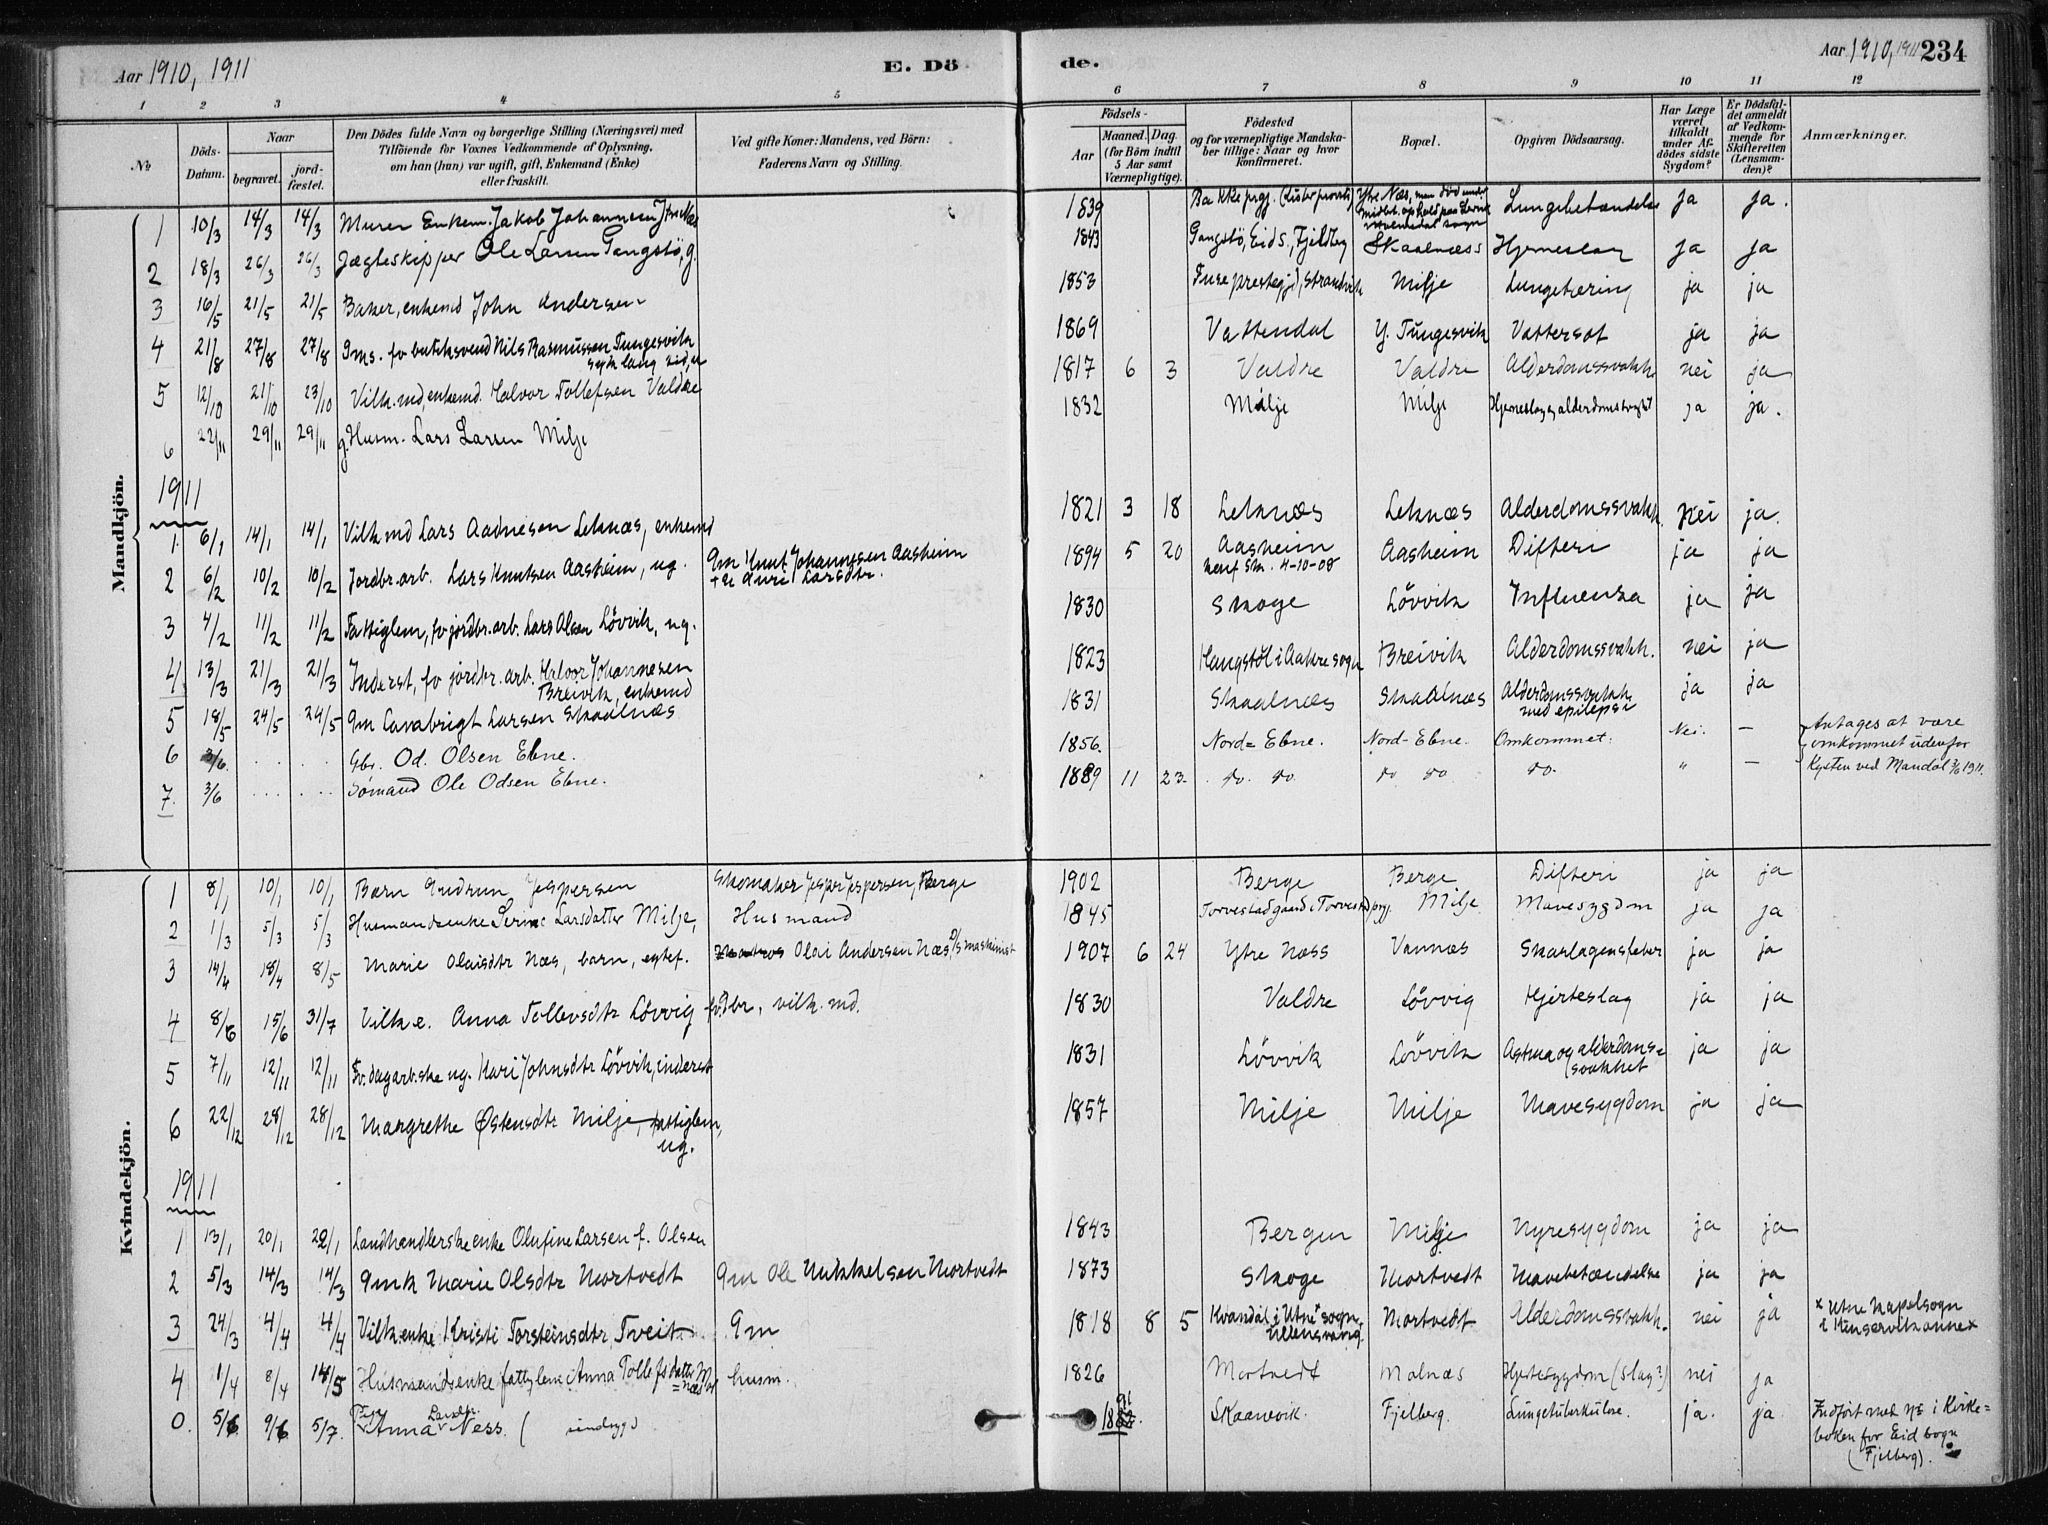 Aar 1910, 1911
E. Dö
de.
Aar 1910, 1911 234
1 2 3 4 5 6 7 8 9 10 11 12
No Döds-Datum. Naar begravet. jordfæstet. Den Dödes fulde Navn og borgerlige Stilling (Næringsvei) med Tilföiende for Voxnes Vedkommende af Oplysning, om han (hun) var ugift, gift, Enkemand (Enke) eller fraskilt. Ved gifte Koner: Mandens, ved Börn: Faderens Navn og Stilling. Födsels- Aar Maaned. Dag. (for Börn indtil 5 Aar samt Værnepligtige). Födested og for værnepligtige Mandskaber tillige: Naar og hvor konfirmeret. Bopæl. Opgiven Dödsaarsag. Har Læge været tilkaldt under Afdödes sidste Sygdom? Er Dödsfaldet anmeldt af Vedkommende for Skifteretten (Lensmanden)? Anmærkninger.
Mandkjön.
1 10/3 14/3 14/3 Murer Enkem. Jakob Johannesen Ytre Næs 1839 Bakke prgj. Ytre Næs, men död under midlert. ophold paa Lungebetændelse ja ja.
2 18/3 26/3 26/3 Jægteskipper Ole Larsen Gangstö, g. 1843 Gangstö, Eid s., Fjeldberg Skaalnæss Hjerneslag ja ja
3 16/5 21/5 21/5 Baker, enkemd John Andersen 1853 Fuse prestegjd, Strandvik Milje Lungetæring ja ja
4 21/8 27/8 27/8 Gms. fv butiksvend Nils Rasmussen Tungesvik 1869 Vattendal Y. Tungesvik Vattersot ja ja
5 12/10 21/10 23/10 Vilk. md, enkemd. Halvor Tollefsen Valdre 1817 6 3 Valdre Valdre Alderdomssvakh. nei ja
6 22/11 29/11 29/11 g. Husm. Lars Larsen Milje 1832 Milje Milje Hjerneslag og alderdomssvakht ja ja.
1911
1. 6/1 14/1 14/1 Vilk md Lars Aadnesen Leknæs, enkemd 1821 3 18 Leknæs Leknæs Alderdomssvakh. Nei ja.
2 6/2 10/2 10/2 Jordbr. arb. Lars Knutsen Aasheim, ug. Gm Knut Johannesen Aasheim + u Guri Larsdtr. 1894 5 20 Aasheim konf Sk. 4-10-08 Aasheim Difteri ja ja
3 4/2 11/2 11/2 Fattiglem, fv jordbr. arb. Lars Olsen Lövvik, ug. 1830 Skoge Lövvik Influensa ja ja
4. 13/3 21/3 21/3 Inderst, fv jordbr. arb. Halvor Johannesen Breivik, enkemd 1823 Haugstöl i Aakre sogn Breivik Alderdomssvakh. nei ja
5 18/5 24/5 24/5 Gm Cavabrigt Larsen Skaalnæs 1831 Skaalnæs Skaalnæs Alderdomssvakh. med epilepsi ja ja
6 3/6. Gbr. Od. Olsen Ebne. 1856. Nord-Ebne. Nord-Ebne. Omkommet. Nei. — Antages at være omkommet udenfor Kysten ved Mandal 3/6 1911.
7. 3/6 Sømand Ole Odsen Ebne. 1889 11 23. do. do. do do do. " —
Kvindekjön.
1 8/1 10/1 10/1 Barn Gudrun Jespersen Skomaker Jesper Jespersen, Berge 1902 Berge Berge Difteri ja ja
2 1/3 5/3 5/3 Husmandsenke Serine Larsdatter Milje, Husmand 1845 Torvestadgaard i Torvestad prgj. Milje Mavesygdm ja ja
3 14/4 18/4 8/5 Marie Olaisdtr Næs, barn, egtef. Matros Olai Andersen Næs, D/S maskinist 1907 6 24 Ytre Næss Vannæs Skarlagensfeber ja ja
4 8/6 15/6 31/7 Vilk e. Anna Tollevsdtr Lövvig fv. Gbr, vilk. md. 1830 Valdre Lövvig Hjerteslag ja ja
5 7/11 12/11 12/11 Fv. dagarb.ske ug. Kari Johnsdtr Lövvik, inderst 1831 Lövvik Lövvik Astma og alderdoms=svakhet ja ja
6 22/12 28/12 28/12 Margrethe Østensdtr Milje, fattiglem, ug. 1857 Milje Milje Mavesygdom ja ja
1911
1 13/1 20/1 22/1 Landhandlerske enke Olufine Larsen f. Olsen 1843 Bergen Milje Nyresygdom ja ja
2 5/3 14/3 14/3 Gmk Marie Olsdtr Mortvedt Gm Ole Mikkelsen Mortvedt 1873 Skoge Mortvedt Mavebetændelse ja ja
3 24/3 4/4 4/4 Vilk enke Kristi Torsteinsdtr Tveit Gm 1818 8 5 Kvandal i Utne x sogn, Ullensvang. Mortvedt Alderdomssvakh. nei ja x Utne kapelsogn i Kinservik annex
4 1/4 8/4 18/5 Husmandsenke fattiglem Anna Tollefsdatter husm. 1826 Mortvedt Malnæs Hjertesygdom (slag?) nei ja
0. 5/6 9/6 5/7. Pige Anna Larsdtr. Ness. ( Skaanevik. Fjelberg. Lungetuberkulose. ja. ja Indfört med No i Kirke=boken for Eid sogn (Fjelberg).